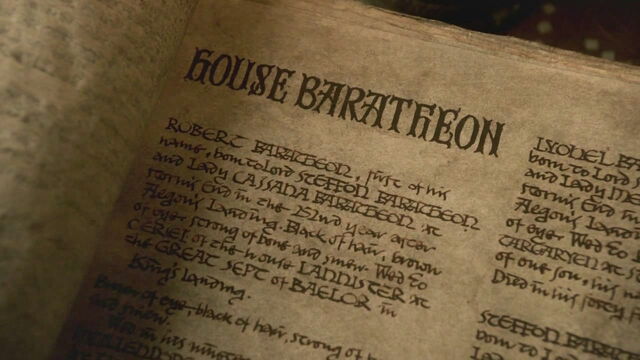 HOUSE BARATHEON
ROBERT BARATHEON, first of his
name, born to Lord STEFFON BARATHEON
and Lady CASSANA BARATHEON at
Storm's End in the 262nd year after
Aegon's Landing. Black of hair, brown
of eye, strong of bone and sinew. Wed to
CERSEI of the house LANNISTER at
the GREAT SEPT of BAELOR in
King's Landing.
of eye, black of hair, strong of
and sinew.
LYONEL BA
born to Lord
and Lady ME
Storm's End in
Aegon's Landin
of eye. Wed to
TARGARYEN at S
of one son, his n
Died in his forty f
STEFFON BARATH
born to
and Lady